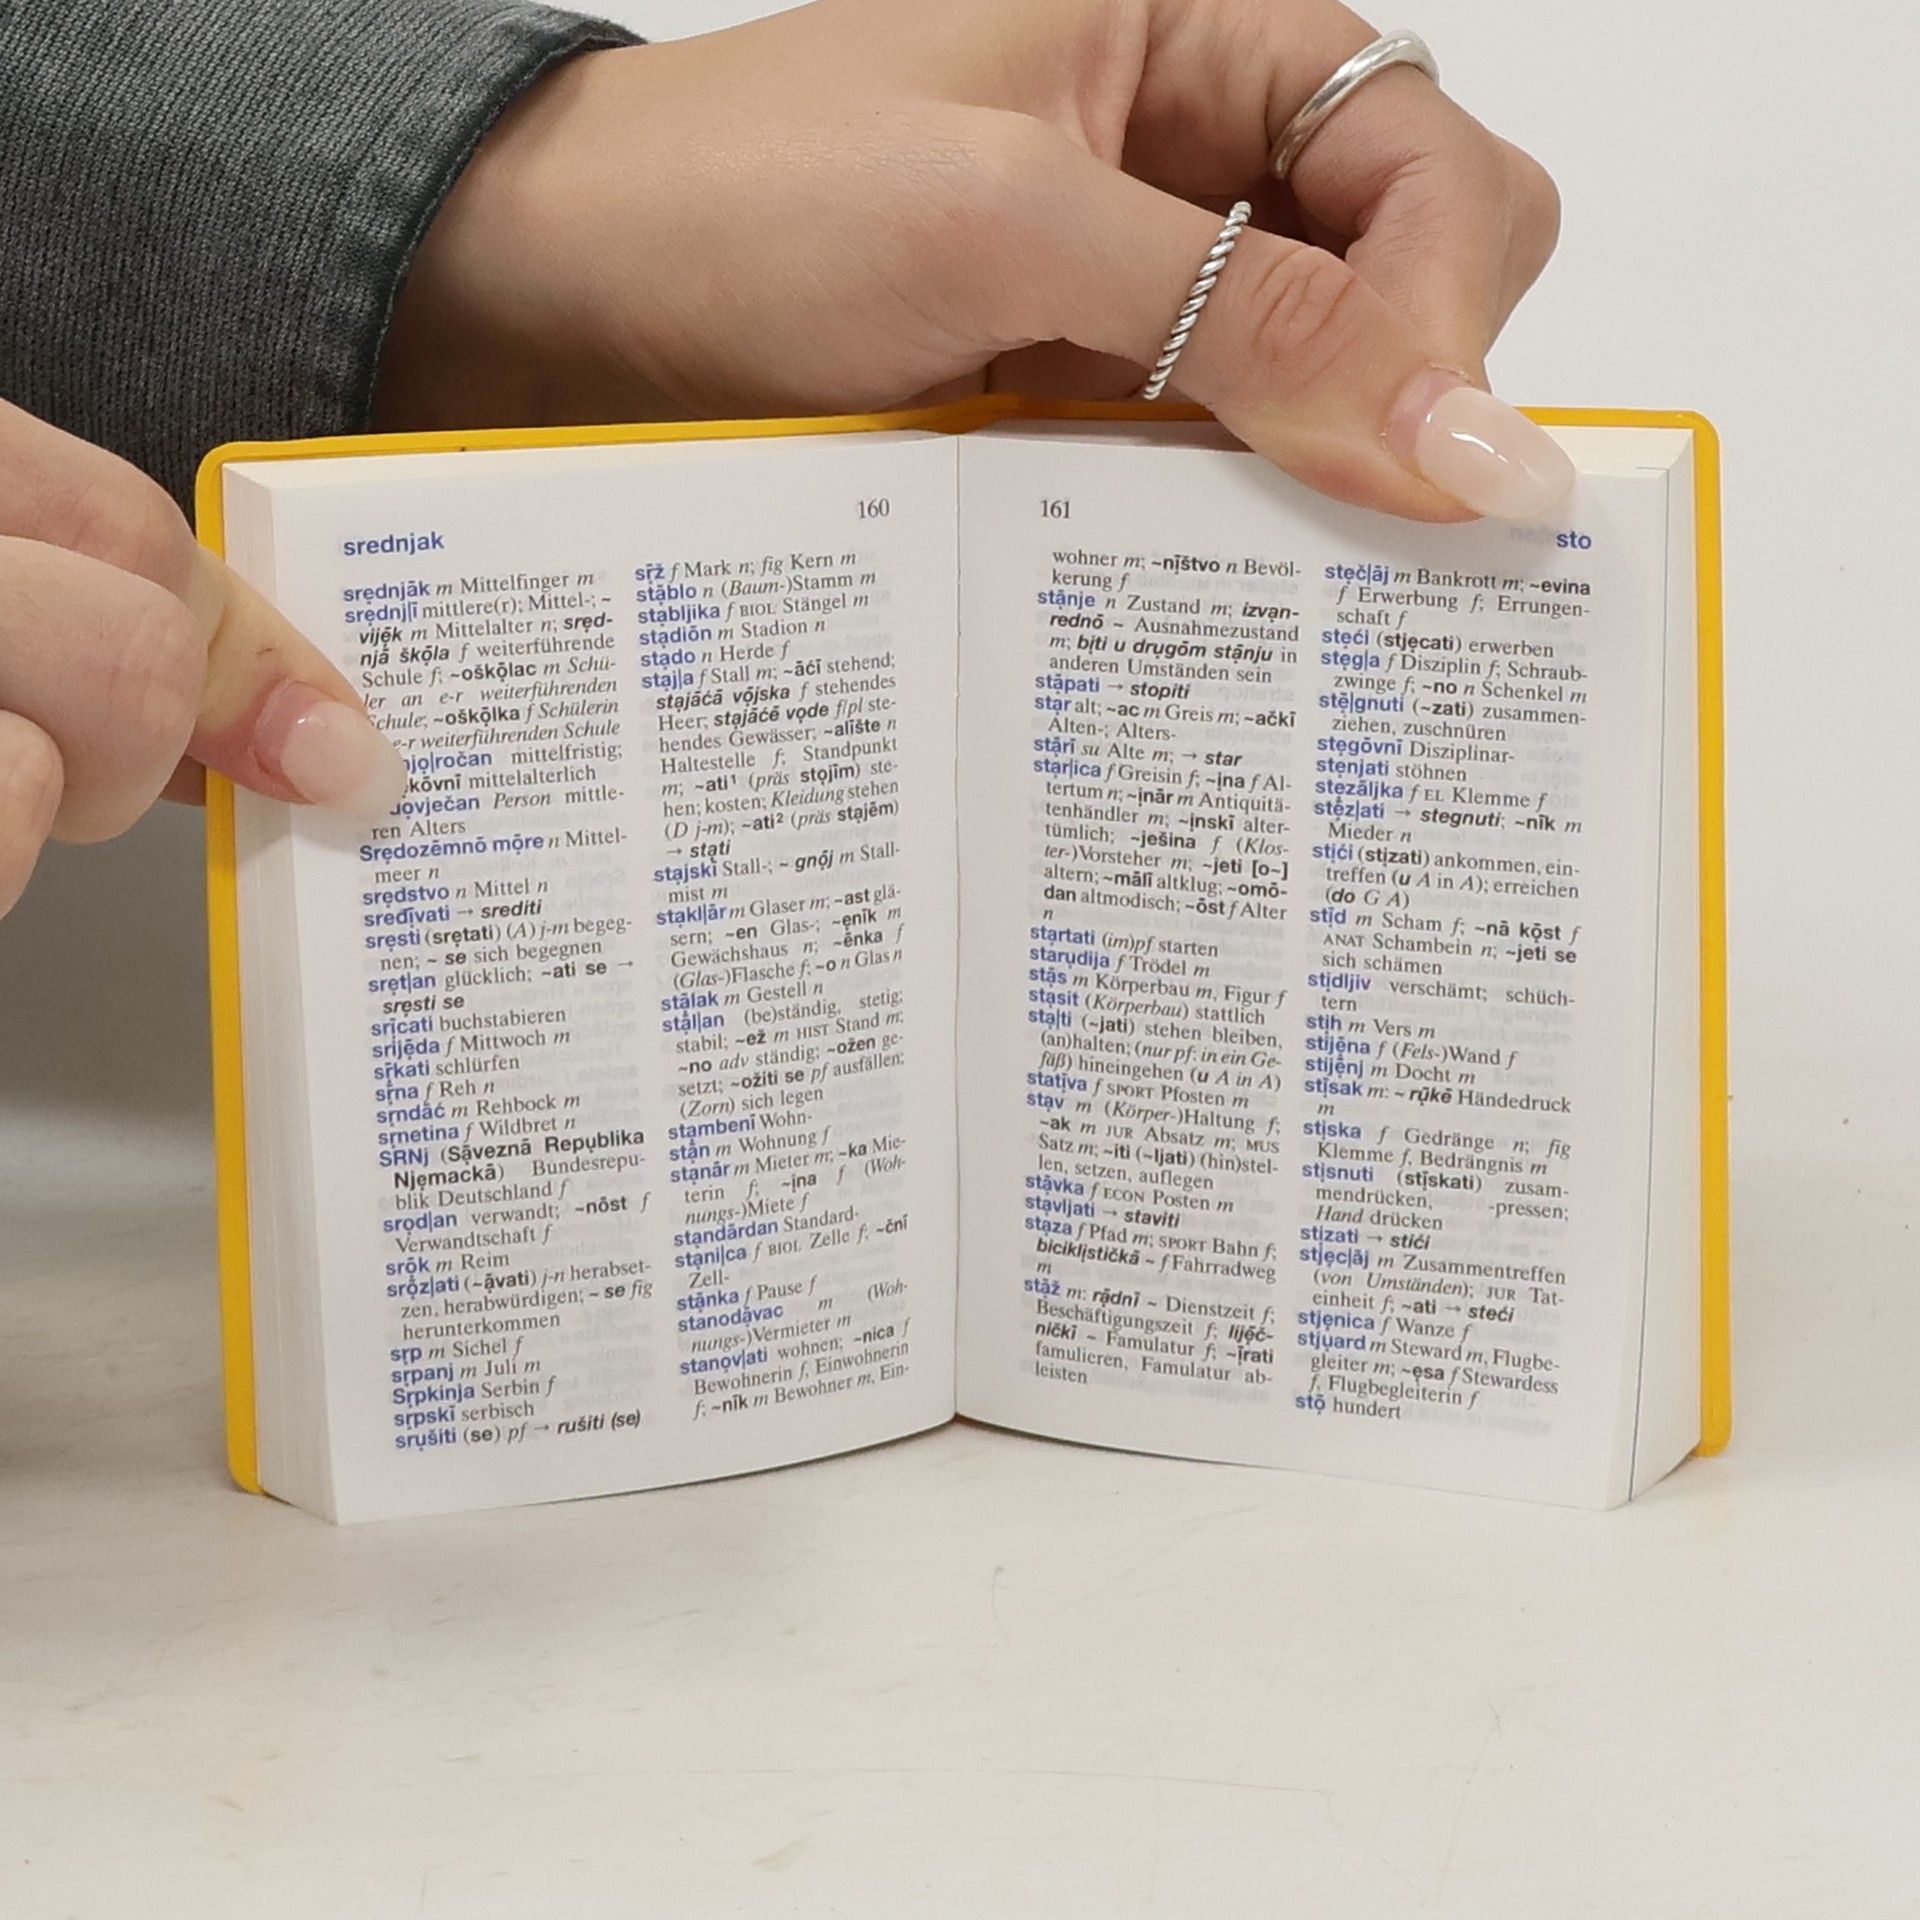 160
srednjak
srẹdnjāk m Mittelfinger m
srẹdnj|ī mittlere(r); Mittel-; ~
vijẹ̄k m Mittelalter n; srẹd-
njā škọ̄la f weiterführende
Schule f; ~oškọ̄lac m Schü-
ler an e-r weiterführenden
Schule; ~oškọ̄lka f Schülerin
e-r weiterführenden Schule
mittelfristig;
mittelalterlich
Person mittle-
ren Alters
Srẹdozēmnō mọ̄re n Mittel-
meer n
srẹdstvo n Mittel n
sređịvati → srediti
srẹsti (srẹtati) (A) j-m begeg-
nen; ~ se sich begegnen
srẹt|an glücklich; ~ati se →
srẹsti se
srịcati buchstabieren
srijẹ̄da f Mittwoch m
sṝkati schlürfen
sṛna f Reh n
sṛndāć m Rehbock m
sṛnetina f Wildbret n
SRNj (Sạ̄veznā Repụblika
Njẹmačkā) Bundesrepu-
blik Deutschland f
srọd|an verwandt; ~nōst f
Verwandtschaft f
srọ̄k m Reim
srọ̄z|ati (~ạ̄vati) j-n herabset-
zen, herabwürdigen; ~ se fig
herunterkommen
sṛp m Sichel f
sṛpanj m Juli m
Sṛpkinja Serbin f
sṛpskī serbisch
srụšiti (se) pf → rušiti (se)
sṝž f Mark n; fig Kern m
stạ̄blo n (Baum-)Stamm m
stạbljika f BIOL Stängel m
stạdiōn m Stadion n
stạdo n Herde f
stạj|a f Stall m; ~āćī stehend;
stạjāćā vọ̄jska f stehendes
Heer; stạjāćē vọde f/pl ste-
hendes Gewässer; ~alīšte n
Haltestelle f; Standpunkt
m; ~ati¹ (präs stojīm) ste-
hen; kosten; Kleidung stehen
(D j-m); ~ati² (präs stạjēm)
→ stạti
stạjskī Stall-; ~ gnọ̄j m Stall-
mist m
stạkl|ār m Glaser m; ~ast glä-
sern; ~en Glas-; ~ẹnīk m
Gewächshaus n; ~ēnka f
(Glas-)Flasche f; ~o n Glas n
stālak m Gestell n
stạ̄l|an (be)ständig, stetig;
stabil; ~ež m HIST Stand m;
~no adv ständig; ~ožen ge-
setzt; ~ožiti se pf ausfällen;
(Zorn) sich legen
stạmbenī Wohn-
stạ̄n m Wohnung f
stạnār m Mieter m; ~ka Mie-
terin f; ~ịna f (Woh-
nungs-)Miete f
stạndārdan Standard-
stạni|ca f BIOL Zelle f; ~čnī
Zell-
stạ̄nka f Pause f
stanodạ̄vac m (Woh-
nungs-)Vermieter m
stanọv|ati wohnen; ~nica f
Bewohnerin f, Einwohnerin
f; ~nīk m Bewohner m, Ein-
161
sto
wohner m; ~nịštvo n Bevöl-
kerung f
stạ̄nje n Zustand m; izvạn-
rednō ~ Ausnahmezustand
m; bịti u drụgōm stạ̄nju in
anderen Umständen sein
stạ̄pati → stopiti
stạr alt; ~ac m Greis m; ~ačkī
Alten-; Alters-
stạ̄rī su Alte m; → star
stạr|ica f Greisin f; ~ịna f Al-
tertum n; ~ịnār m Antiquitä-
tenhändler m; ~ịnskī alter-
tümlich; ~ješina f (Klos-
ter-)Vorsteher m; ~jeti [o~]
altern; ~mālī altklug; ~omō-
dan altmodisch; ~ōst f Alter
n
stạrtati (im)pf starten
starụdija f Trödel m
stạ̄s m Körperbau m, Figur f
stạsit (Körperbau) stattlich
stạ|ti (~jati) stehen bleiben,
(an)halten; (nur pf: in ein Ge-
fäß) hineingehen (u A in A)
statịva f SPORT Pfosten m
stạv m (Körper-)Haltung f;
~ak m JUR Absatz m; MUS
Satz m; ~iti (~ljati) (hin)stel-
len, setzen, auflegen
stạ̄vka f ECON Posten m
stạvljati → staviti
stạza f Pfad m; SPORT Bahn f;
biciklịstičkā ~ f Fahrradweg
m
stạ̄ž m: rạ̄dnī ~ Dienstzeit f;
Beschäftigungszeit f; lijẹ̄č-
ničkī ~ Famulatur f; ~īrati
famulieren, Famulatur ab-
leisten
stẹč|āj m Bankrott m; ~evina
f Erwerbung f; Errungen-
schaft f
stẹći (stjẹcati) erwerben
stẹg|a f Disziplin f; Schraub-
zwinge f; ~no n Schenkel m
stẹ̄|gnuti (~zati) zusammen-
ziehen, zuschnüren
stẹgōvnī Disziplinar-
stẹnjati stöhnen
stezāljka f EL Klemme f
stẹ̄z|ati → stegnuti; ~nīk m
Mieder n
stịći (stịzati) ankommen, ein-
treffen (u A in A); erreichen
(do G A)
stịd m Scham f; ~nā kọ̄st f
ANAT Schambein n; ~jeti se
sich schämen
stịdljiv verschämt; schüch-
tern
stịh m Vers m
stijẹ̄na f (Fels-)Wand f
stijẹ̄nj m Docht m
stịsak m: ~ rụ̄kē Händedruck
m
stịska f Gedränge n; fig
Klemme f, Bedrängnis m
stịsnuti (stịskati) zusam-
mendrücken, -pressen;
Hand drücken
stịzati → stići
stjẹc|āj m Zusammentreffen
(von Umständen); JUR Tat-
einheit f; ~ati → steći
stjẹnica f Wanze f
stjụard m Steward m, Flugbe-
gleiter m; ~ẹsa f Stewardess
f, Flugbegleiterin f
stọ̄ hundert